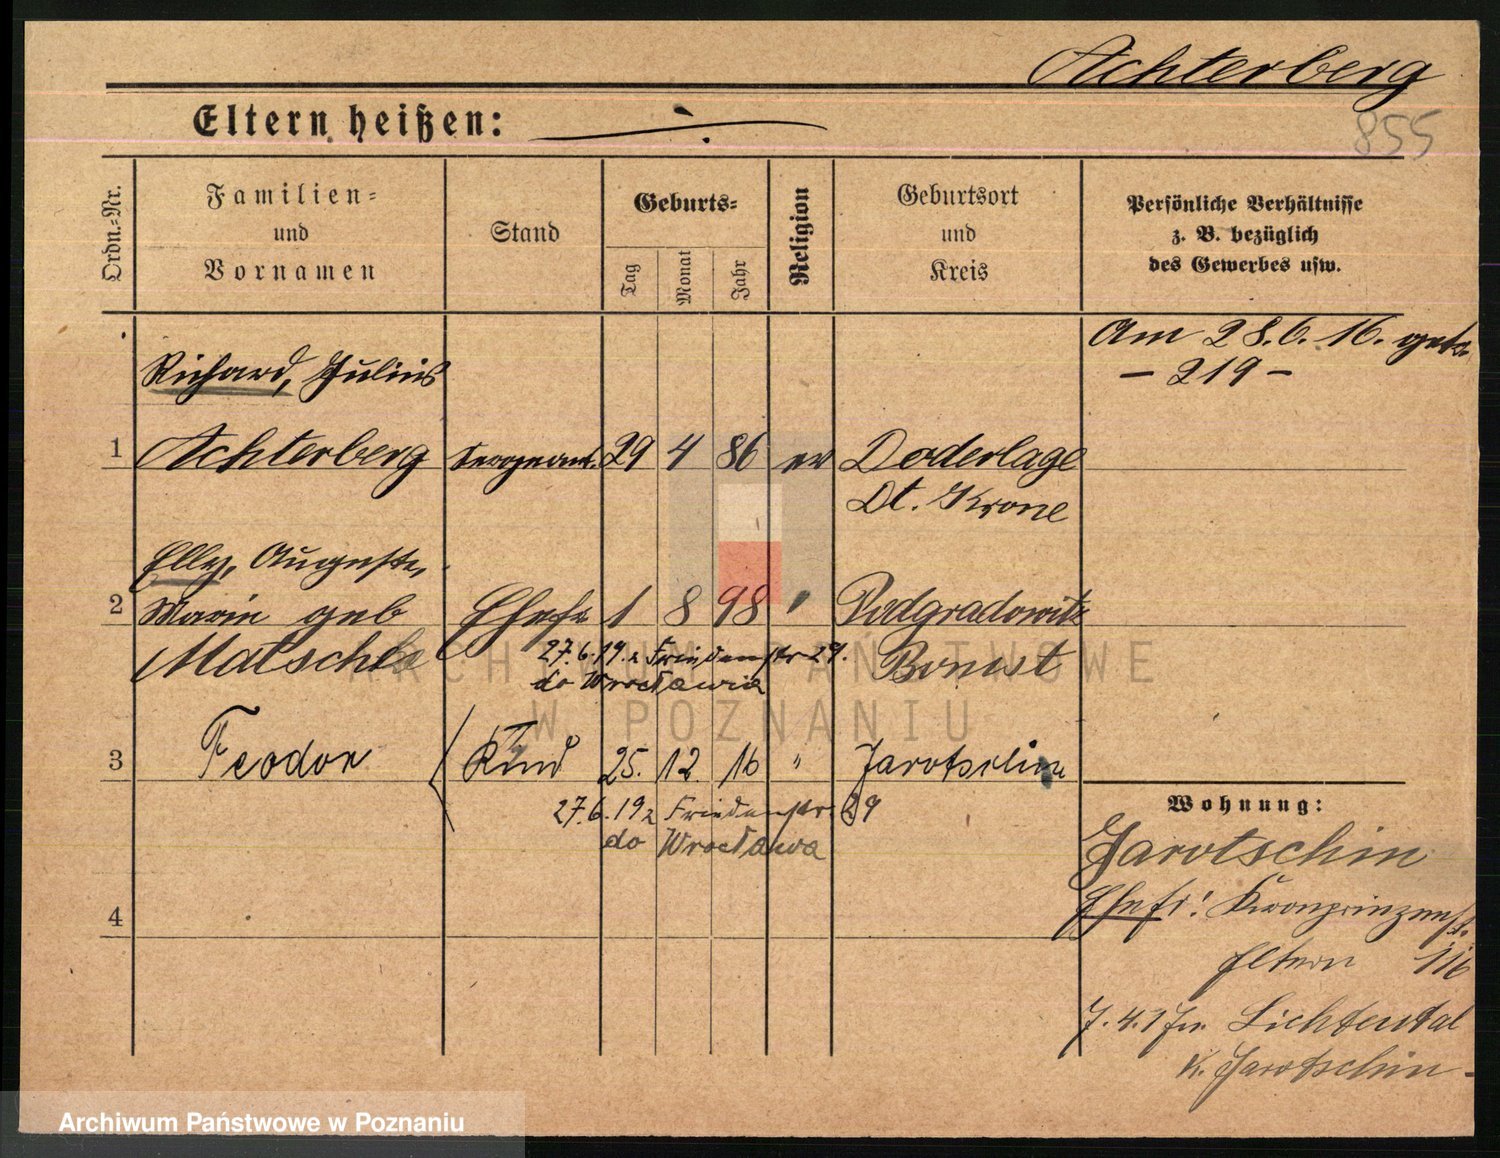 Achterberg
855
Eltern heißen:
Ordn.-Nr.
Familien-
und
Vornamen
Stand
Geburts-
Tag
Monat
Jahr
Religion
Geburtsort
und
Kreis
Persönliche Verhältnisse
z. B. bezüglich
des Gewerbes usw.
Am 28.6.16. getr.
— 219 —
Richard, Julius
1 Achterberg Sergeant. 29 4 86 ev Doderlage
Dt. Krone
Elly, Auguste,
2 Marie geb Ehefr 1 8 98 " Podgradowitz
Matschke 27.6.19. z Friedenstr 29. Bomst
do Wrocławia
3 Feodor Kind 25. 12 16 " Jarotschin
27.6.19 z Friedenstr. 29
do Wrocława
4
Wohnung:
Jarotschin
Ehefr: Kronprinzenst.
Eltern 116
7.4.17 Lichtental
K. Jarotschin-
ARCHIWUM PAŃSTWOWE
W POZNANIU
Archiwum Państwowe w Poznaniu